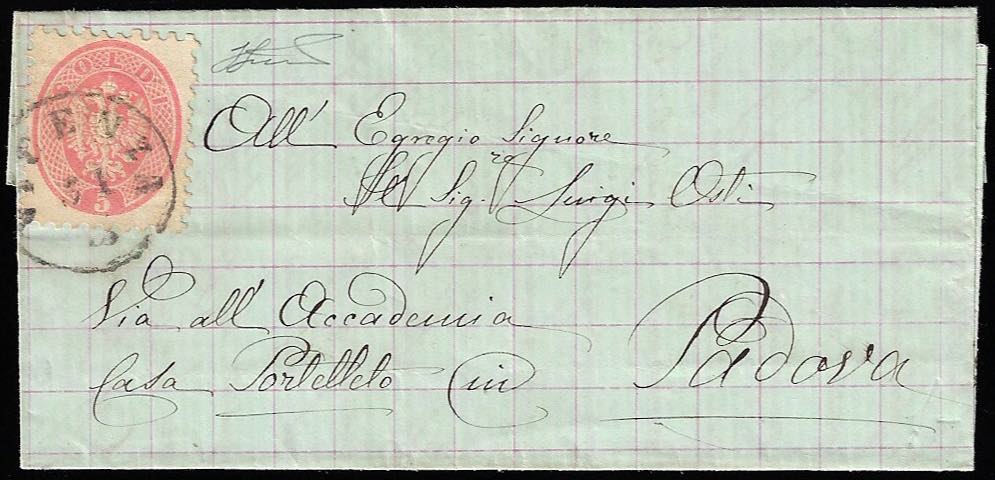 SOLDI
5
All' Egregio Signore
Il Sig.ra Luigi Osti
Via all' Accademia
Casa Portelleto in Padova